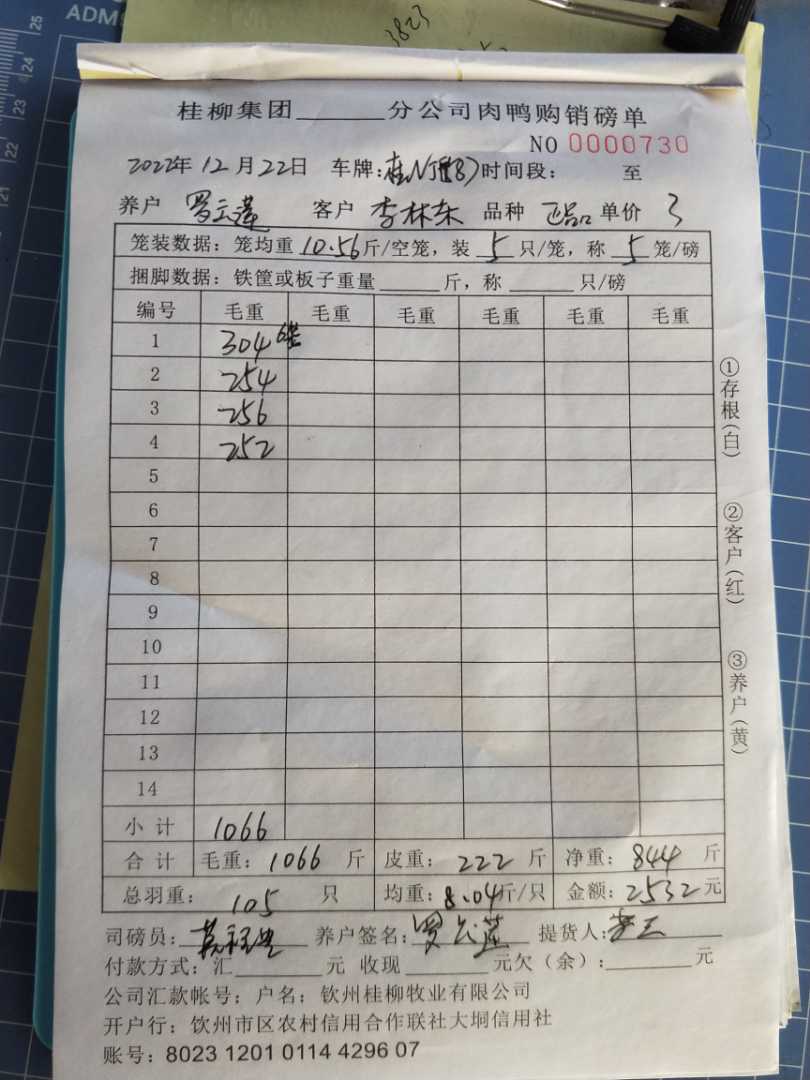 3823
桂柳集团______分公司肉鸭购销磅单
NO 0000730
2022年12月22日 车牌: 时间段: 至
养户 罗云莲 客户 李林东 品种 正品 单价 3
笼装数据: 笼均重 10.56 斤/空笼, 装 5 只/笼, 称 5 笼/磅
捆脚数据: 铁筐或板子重量______斤, 称______只/磅
编号 毛重 毛重 毛重 毛重 毛重 毛重
1 304
2 254
3 256
4 252
5
6
7
8
9
10
11
12
13
14
小计 1066
合计 毛重: 1066 斤 皮重: 222 斤 净重: 844 斤
总羽重: 105 只 均重: 8.04 斤/只 金额: 2532 元
司磅员: 养户签名: 罗云莲 提货人:
付款方式: 汇______元 收现______元欠(余):______元
公司汇款帐号: 户名: 钦州桂柳牧业有限公司
开户行: 钦州市区农村信用合作联社大垌信用社
账号: 8023 1201 0114 4296 07
①存根(白)
②客户(红)
③养户(黄)
ADM
25
24
23
22
21